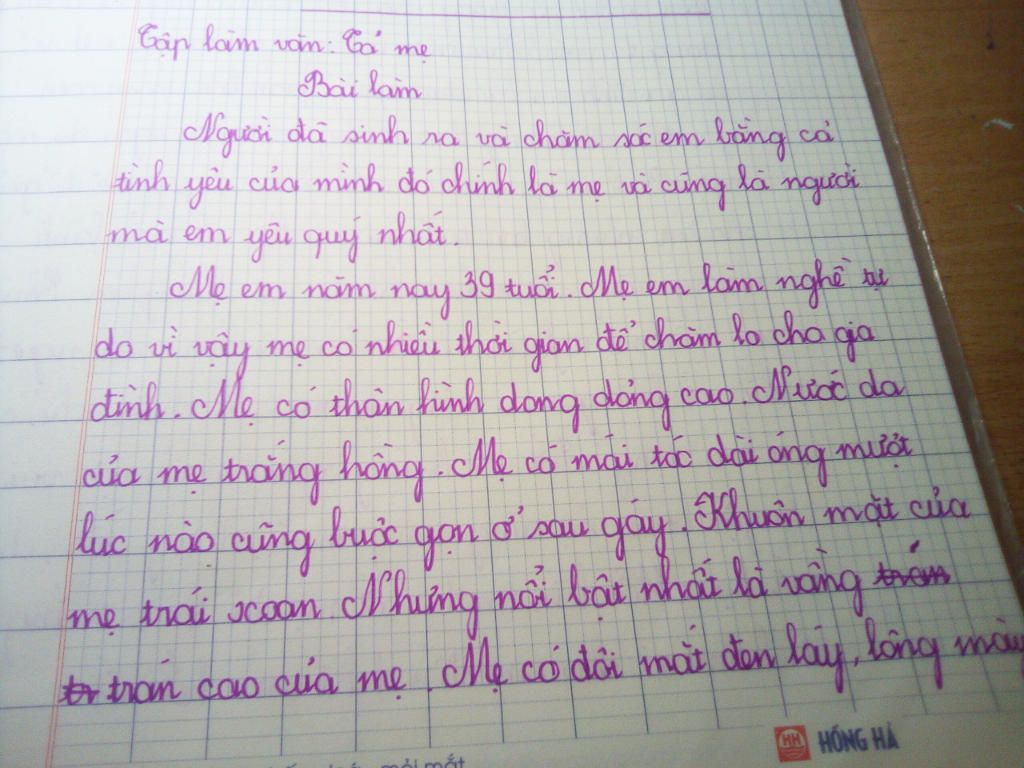 Tập làm văn: Tả mẹ
Bài làm
Người đã sinh ra và chăm sóc em bằng cả
tình yêu của mình đó chính là mẹ và cũng là người
mà em yêu quý nhất.
Mẹ em năm nay 39 tuổi. Mẹ em làm nghề tự
do vì vậy mẹ có nhiều thời gian để chăm lo cho gia
đình. Mẹ có thân hình dong dỏng cao. Nước da
của mẹ trắng hồng. Mẹ có mái tóc dài óng mượt
lúc nào cũng buộc gọn ở sau gáy. Khuôn mặt của
mẹ trái xoan. Nhưng nổi bật nhất là vầng
trán cao của mẹ. Mẹ có đôi mắt đen láy, lông mày
HH HỒNG HÀ